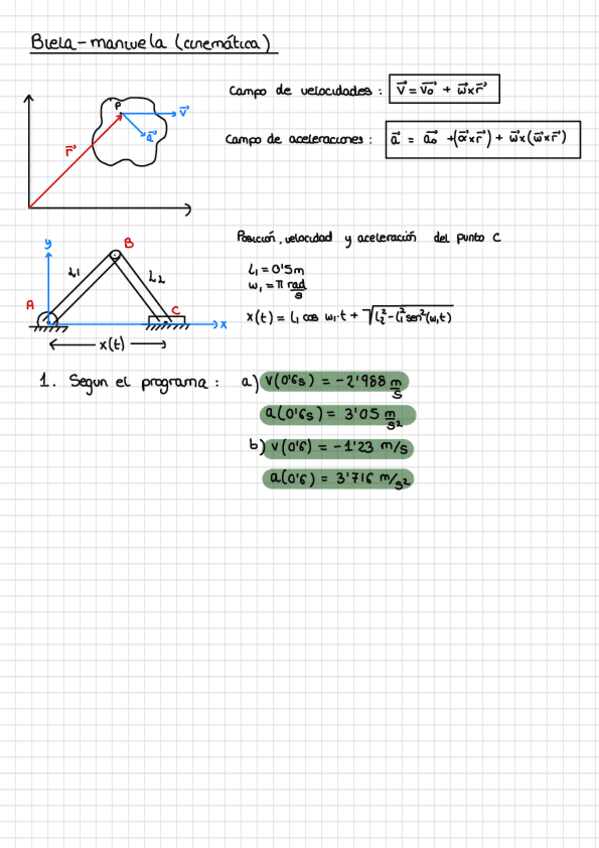 Biela-manivela (cinemática)
Campo de velocidades : v⃗ = v⃗₀ + ω⃗×r⃗
P
v⃗
a⃗
r⃗
Campo de aceleraciones : a⃗ = a⃗₀ +(α⃗×r⃗) + ω⃗×(ω⃗×r⃗)
Posición, velocidad y aceleración del punto C
y
B
L₁
L₂
A
C
x
x(t)
L₁ = 0'5m
ω₁ = π rad/s
x(t) = L₁ cos ω₁·t + √L₂²-L₁²sen²(ω₁t)
1. Segun el programa : a) v(0'6s) = -2'988 m/s
a(0'6s) = 3'05 m/s²
b) v(0'6) = -1'23 m/s
a(0'6) = 3'716 m/s²